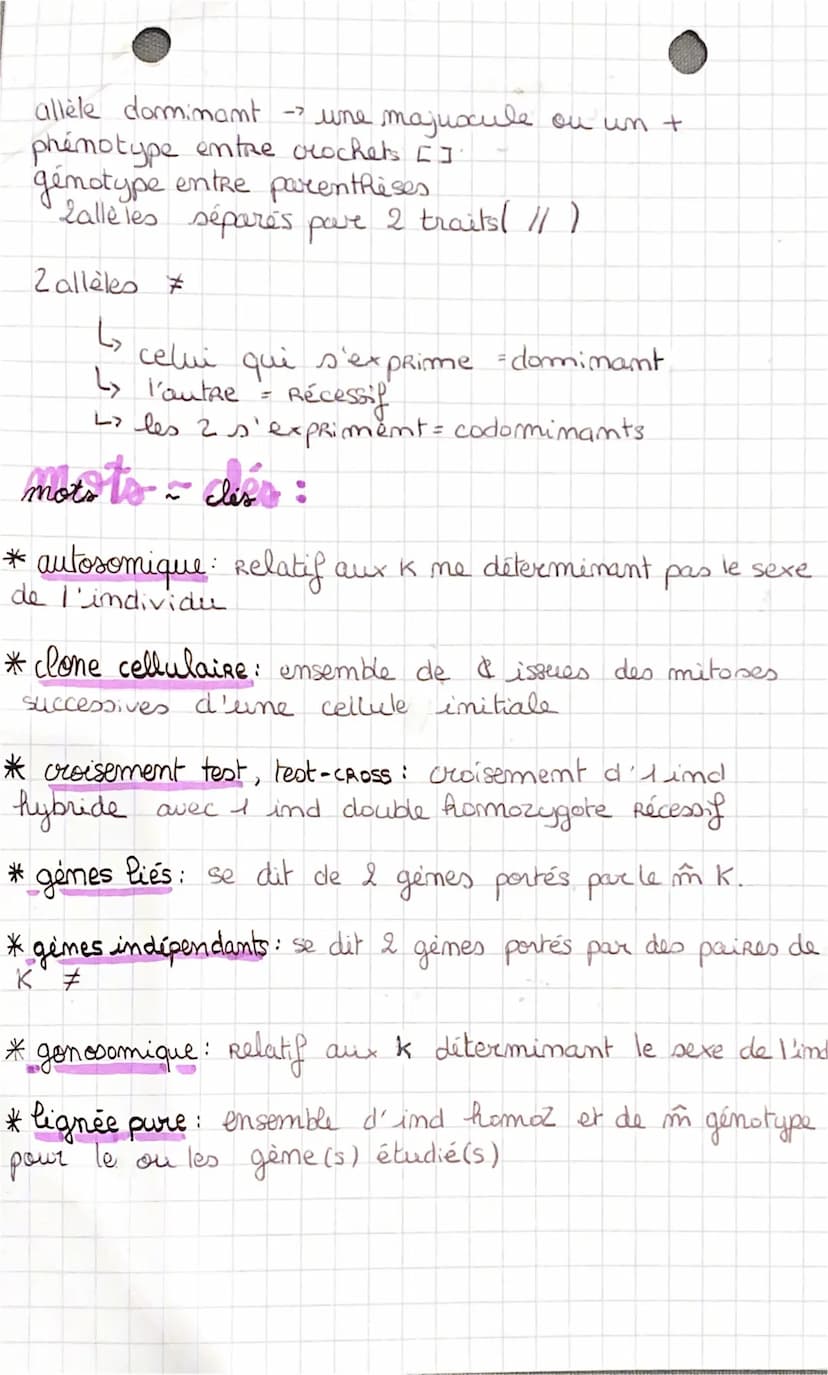 allèle dominant -> une majuscule ou un +
phénotype entre crochets [ ]
génotype entre parenthèses
2 allèles séparés par 2 traits ( // )
2 allèles ≠
↳ celui qui s'exprime = dominant
↳ l'autre = Récessif
↳ les 2 s'expriment = codominants
mots - clés :
* autosomique : Relatif aux K ne déterminant pas le sexe
de l'individu
* clone cellulaire : ensemble de ₵ issues des mitoses
successives d'une cellule initiale
* croisement test, test-cross : croisement d'1 ind
hybride avec 1 ind double homozygote Récessif
* gènes liés : se dit de 2 gènes portés par le m̂ K.
* gènes indépendants : se dit 2 gènes portés par des paires de
K ≠
* gonosomique : Relatif aux K déterminant le sexe de l'ind
* lignée pure : ensemble d'ind homoz et de m̂ génotype
pour le ou les gène(s) étudié(s)